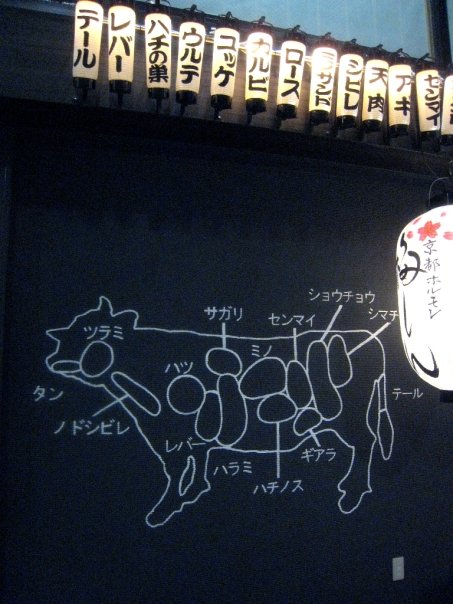 テール
レバー
ハチの巣
ウルテ
コッケ
カルビ
ロース
ミサンド
シビレ
天肉
アキ
センマイ
京都ホルモン
ショウチョウ
サガリ
センマイ
シマチ
ツラミ
ミノ
ハツ
タン
テール
ノドシビレ
レバー
ギアラ
ハラミ
ハチノス